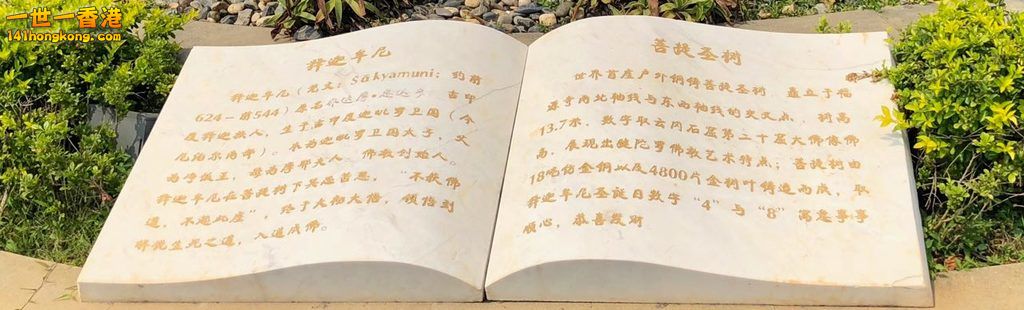 一世一香港
141hongkong.com
释迦牟尼
释迦牟尼（梵文：Śākyamuni；约前
624－前544）原名乔达摩·悉达多 古印
度释迦族人，生于古印度迦毗罗卫国（今
尼泊尔南部）。本为迦毗罗卫国太子，父
为净饭王，母为摩耶夫人 佛教创始人。
释迦牟尼在菩提树下冥思苦想， “不获佛
道，不起此座”，终于大彻大悟，领悟到
解脱生死之道，入道成佛。
菩提圣树
世界首座户外铜铸菩提圣树 矗立于
源寺南北轴线与东西轴线的交叉点 树高
13.7米，数字取云冈石窟第二十窟大佛像佛
高，展现出犍陀罗佛教艺术特点；菩提树由
18吨仿金铜以及4800片金树叶铸造而成，取
释迦牟尼圣诞日数字“4”与“8” 寓意事事
顺心，恭喜发财